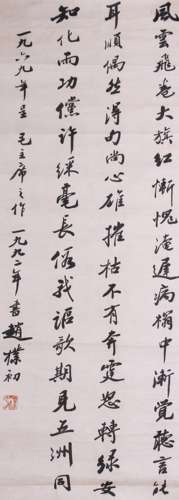 風雲飛卷大旗紅慚愧淹遲病榻中漸覺聽言能
耳順偶然得力尚心雄摧枯不有奔霆怒轉綠安
知化雨功儻許綵毫長我謳歌期見五洲同
一九六九年呈毛主席之作一九九二年書趙樸初